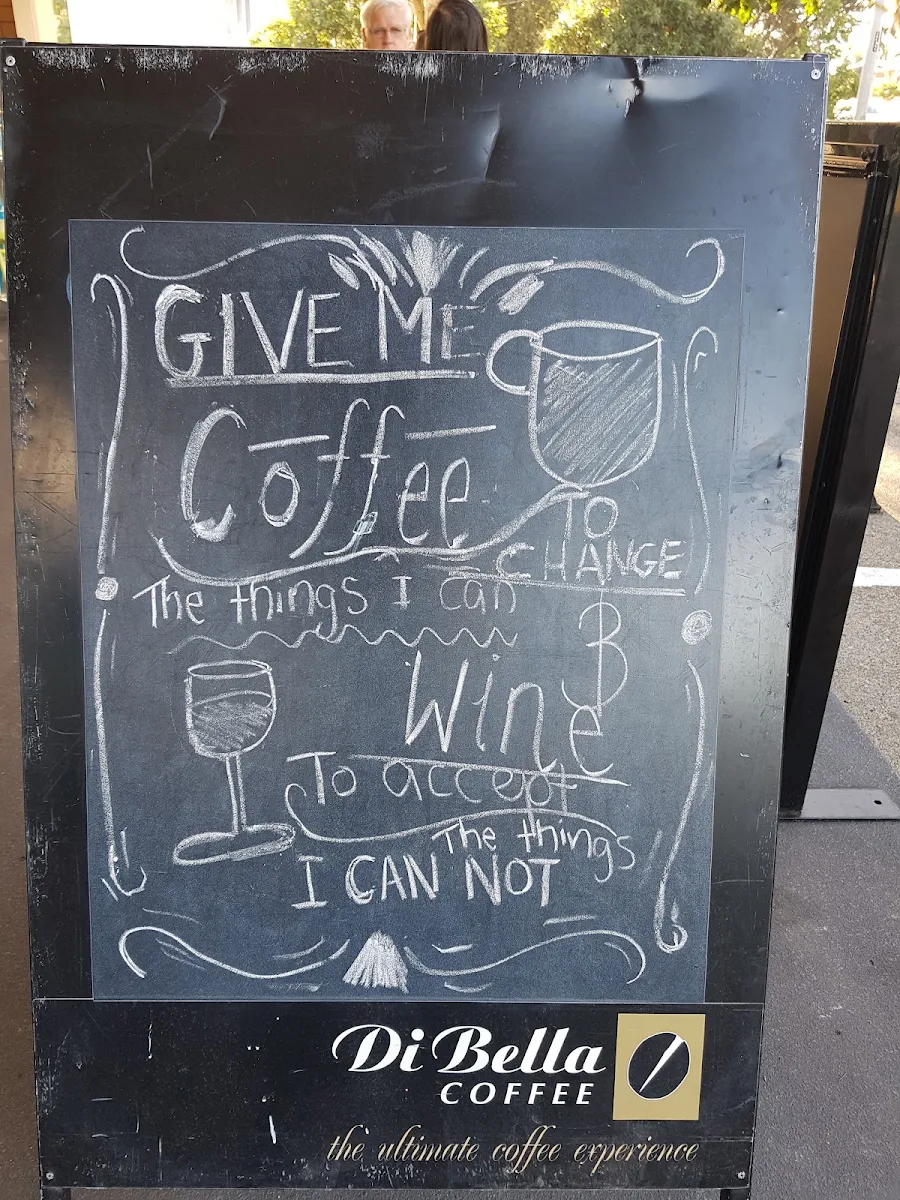 GIVE ME
Coffee
TO
CHANGE
The things I can
&
Wine
To accept
The things
I CAN NOT
Di Bella
COFFEE
the ultimate coffee experience